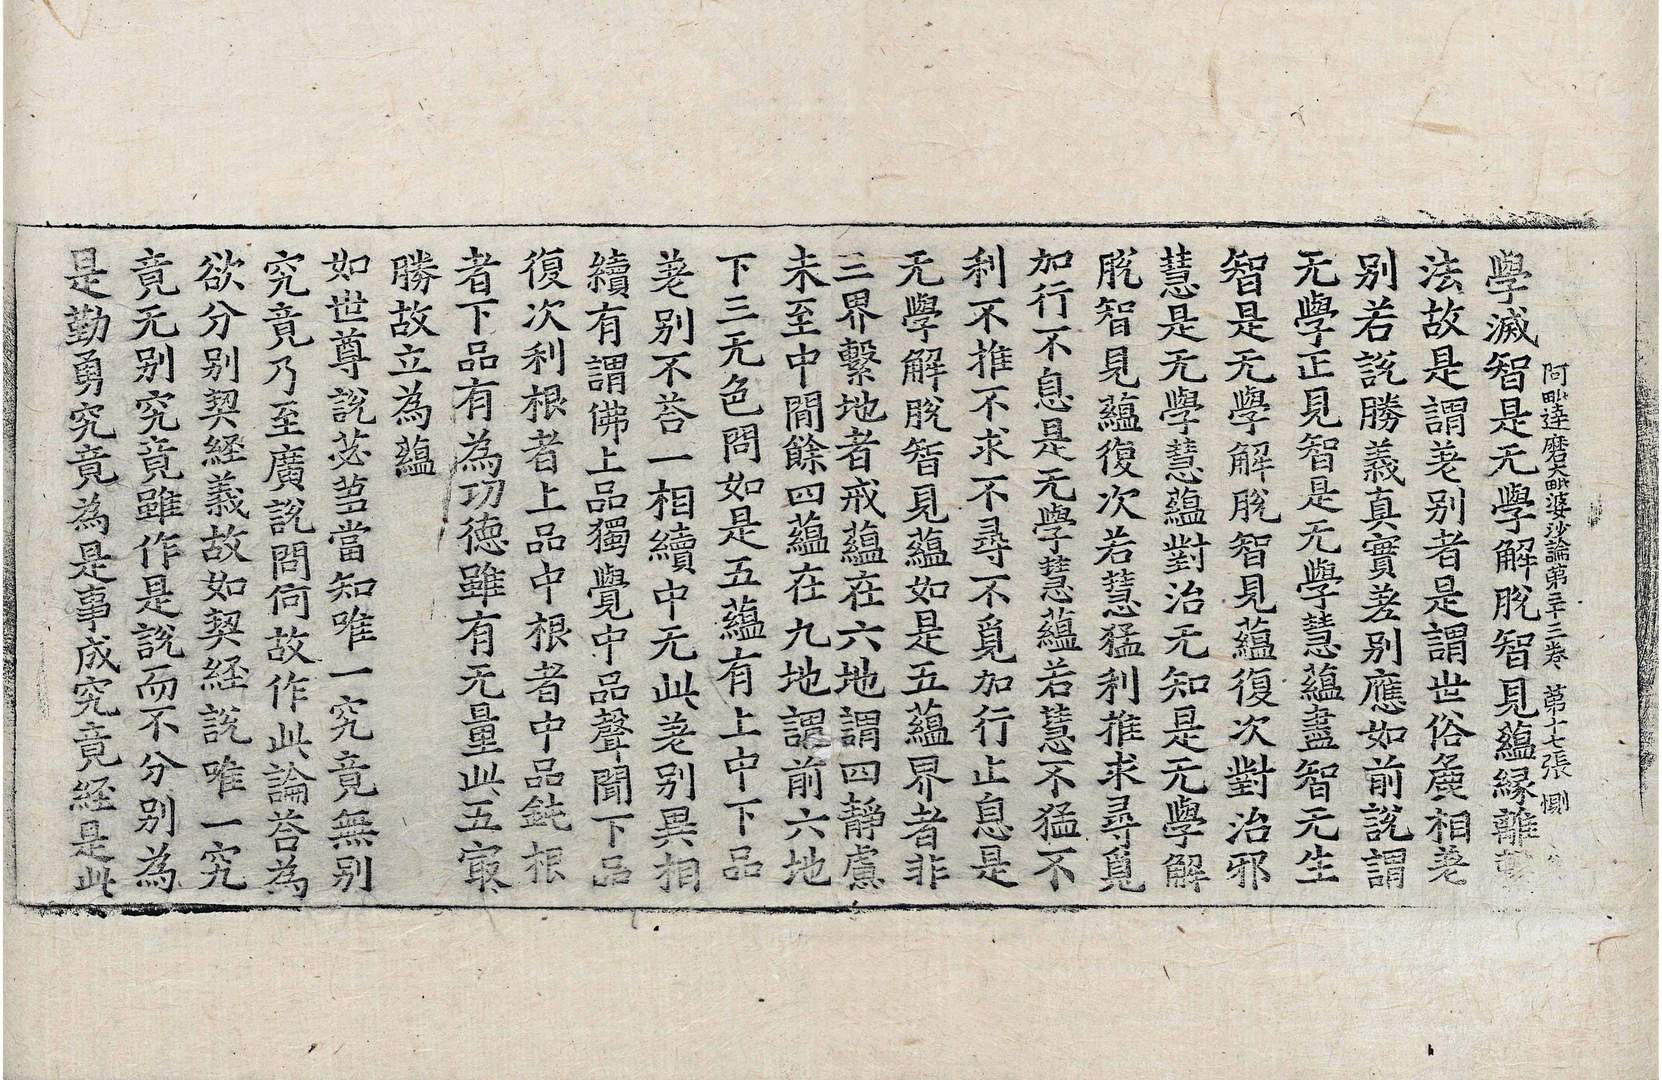 阿毗達磨大毗婆沙論第三十三卷 第十七張 惻
學滅智是无學解脫智見蘊緣離繫
法故是謂差別者是謂世俗麁相差
別若說勝義真實差別應如前說謂
无學正見智是无學慧蘊盡智无生
智是无學解脫智見蘊復次對治邪
慧是无學慧蘊對治无知是无學解
脫智見蘊復次若慧猛利推求尋覓
加行不息是无學慧蘊若慧不猛不
利不推不求不尋不覓加行止息是
无學解脫智見蘊如是五蘊界者非
三界繫地者戒蘊在六地謂四靜慮
未至中間餘四蘊在九地謂前六地
下三无色問如是五蘊有上中下品
差別不荅一相續中无此差別異相
續有謂佛上品獨覺中品聲聞下品
復次利根者上品中根者中品鈍根
者下品有為功德雖有无量此五㝡
勝故立為蘊
如世尊說苾芻當知唯一究竟無別
究竟乃至廣說問何故作此論荅為
欲分別契經義故如契經說唯一究
竟无別究竟雖作是說而不分別為
是勤勇究竟為是事成究竟經是此